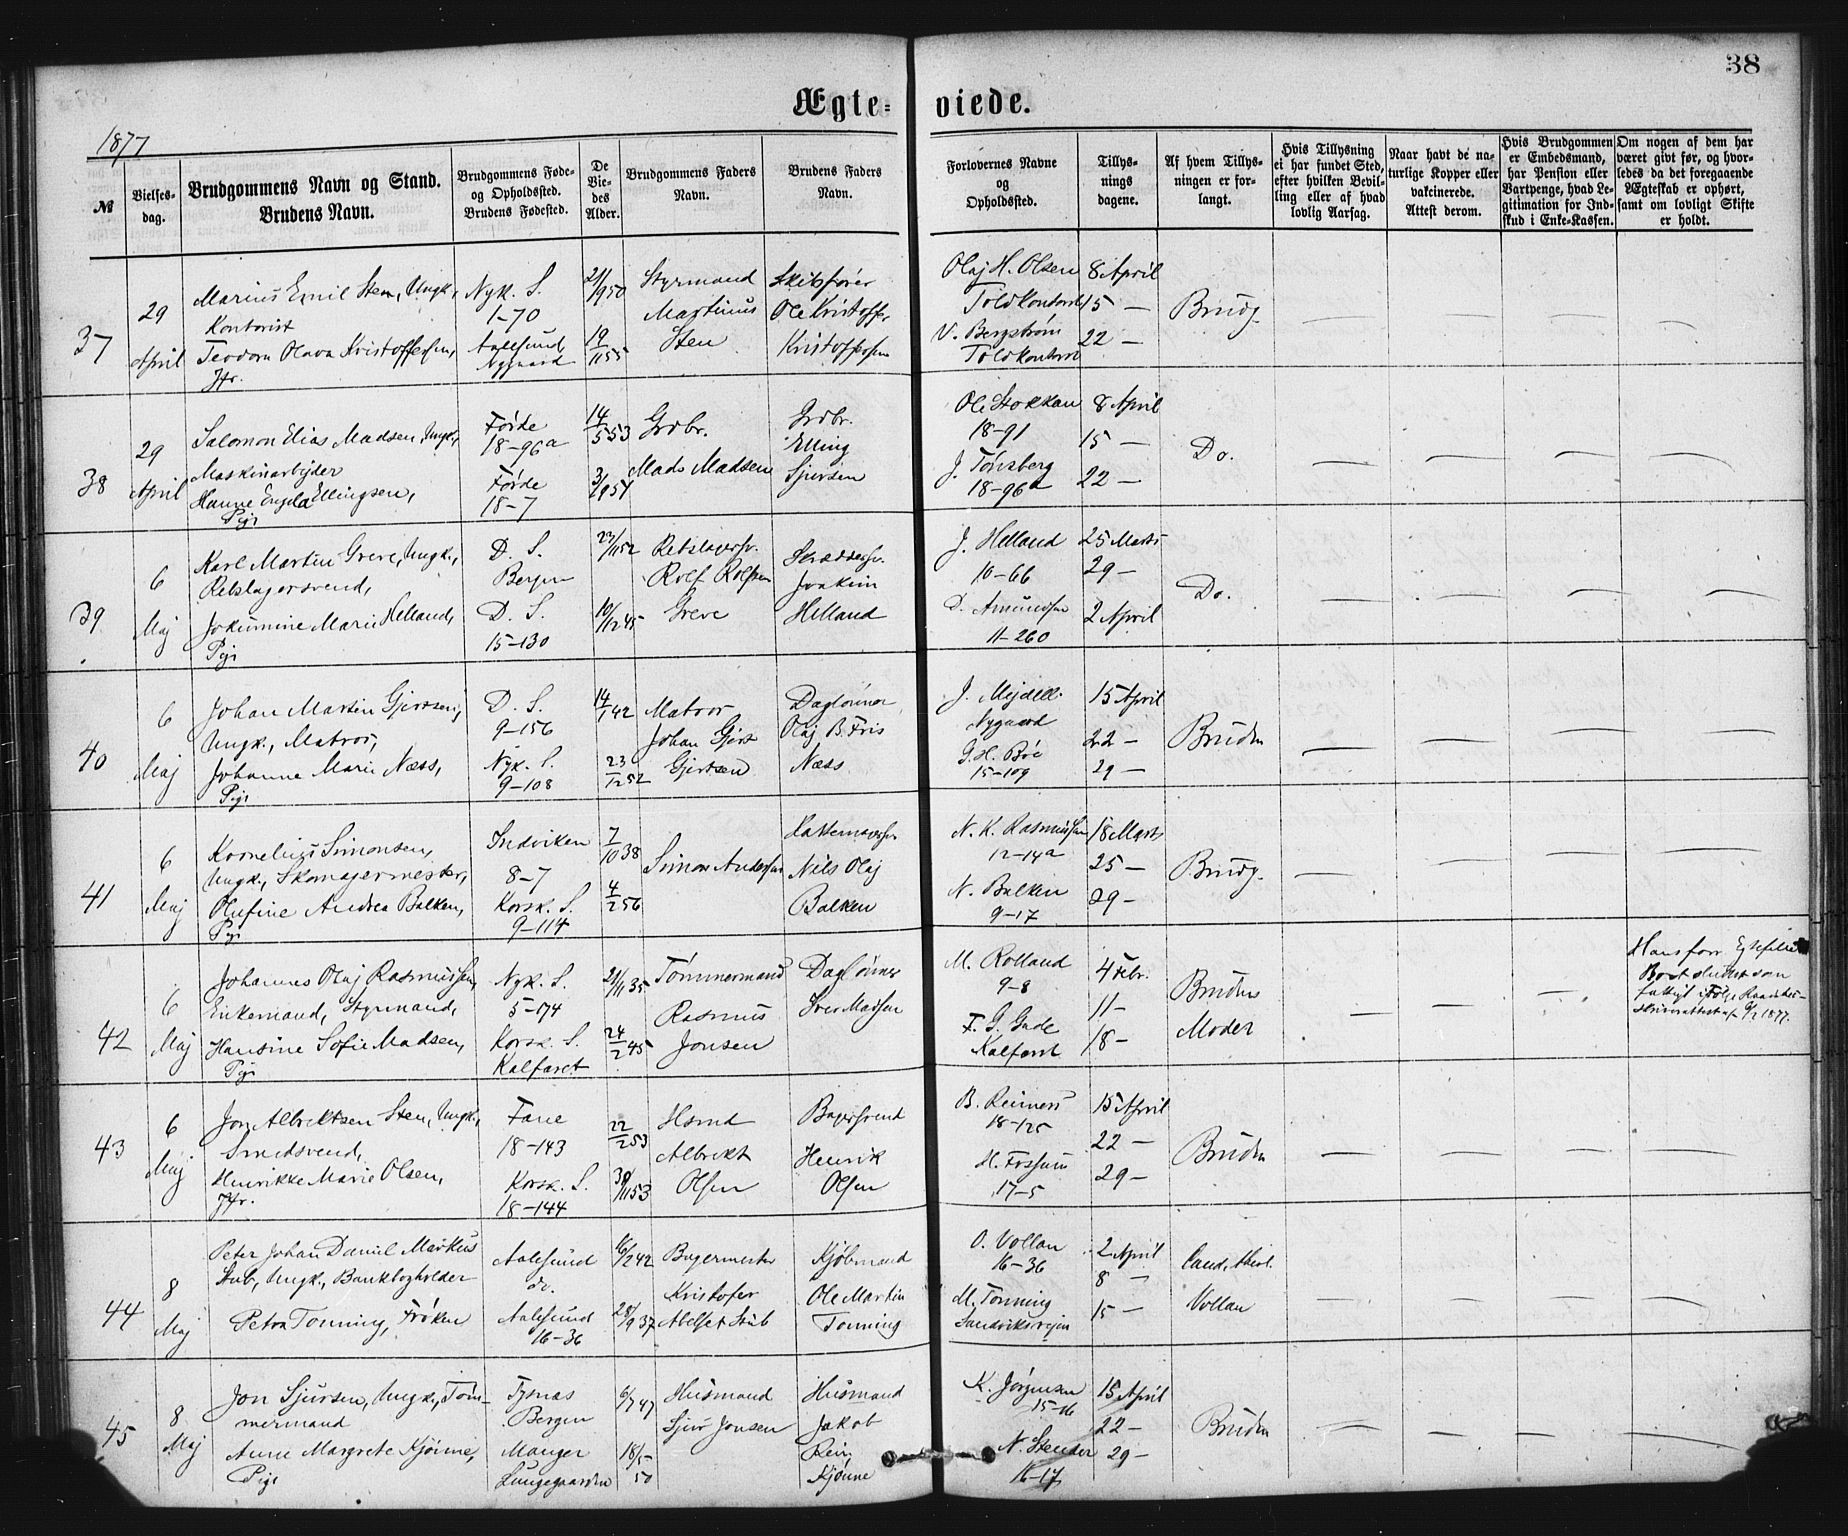 38
Ægte-viede.
1877
№
Vielses-
dag.
Brudgommens Navn og Stand.
Brudens Navn.
Brudgommens Føde-
og Opholdssted.
Brudens Fødested.
De
Vie-
des
Alder.
Brudgommens Faders
Navn.
Brudens Faders
Navn.
Forlovernes Navne
og
Opholdssted.
Tillys-
nings
dagene.
Af hvem Tillys-
ningen er for-
langt.
Hvis Tillysning
ei har fundet Sted,
efter hvilken Bevil-
ling eller af hvad
lovlig Aarsag.
Naar havt de na-
turlige Kopper eller
vakcinerede.
Attest derom.
Hvis Brudgommen
er Embedsmand,
har Pension eller
Vartpenge, hvad Le-
gitimation for Ind-
skud i Enke-Kassen.
Om nogen af dem har
været givt før, og hvor-
ledes da det foregaaende
Ægteskab er ophørt,
samt om lovligt Skifte
er holdt.
37
29
April
Marius Emil Sten, Ungk.,
Kontorist
Teodora Olava Kristoffersen,
Jfr.
Nyk. S.
1-70
Aalesund
Nygaard
21/9 50
19/11 55
Styrmand
Martinus
Sten
Skibsfører
Ole Kristoffer
Kristoffersen
Olaj H. Olsen
Toldkontoret
V. Bergstrøm
Toldkontoret
8 April
15 —
22 —
Brudg.
38
29
April
Salomon Elias Madsen, Ungk.,
Maskinarbejder
Hanne Engela Ellingsen,
Pige
Førde
18-96a
Førde
18-7
14/5 53
3/9 54
Grdbr.
Mads Madsen
Grdbr.
Elling
Sjursen
Ole Stokkan
18-91
J. Tønsberg
18-96a
8 April
15 —
22 —
Do.
39
6
Maj
Karl Martin Greve, Ungk.,
Rebslagersvend,
Jokumine Marie Helland,
Pige
D. S.
Bergen
D. S.
15-130
23/11 52
10/12 45
Rebslagersv.
Rolf Rolfsen
Greve
Skræddersv.
Joakim
Helland
J. Helland
10-66
Amundsen
11-260
25 Marts
29 —
2 April
Do.
40
6
Maj
Johan Martin Gjertsen,
Ungk., Matros,
Johanne Marie Næss,
Pige
D. S.
9-156
Nyk. S.
9-108
14/1 42
23/12 52
Matros
Johan Gjert
Gjertsen
Daglønner
Olaj B. Fris
Næss
J. Mejdell
Nygaard
G. H. Bøe
15-109
15 April
22 —
29 —
Bruden
41
6
Maj
Kornelius Simonsen,
Ungk., Skomagermester,
Olufine Andrea Balken,
Pige
Indviken
8-7
Korsk. S.
9-114
7/10 38
4/2 56
Simon Andersen
Hattemagersv.
Nils Olaj
Balken
N. K. Rasmussen
12-14a
N. Balken
9-17
18 Marts
25 —
29 —
Brudg.
42
6
Maj
Johannes Olaj Rasmussen,
Enkemand, Styrmand,
Hansine Sofie Madsen,
Pige
Nyk. S.
5-174
Korsk. S.
Kalfaret
21/11 35
24/2 45
Tømmermand
Rasmus
Jonsen
Daglønner
Iver Madsen
M. Rolland
9-8
F. G. Gade
Kalfaret
4 Febr.
11 —
18 —
Brudens
Moder
Hans forr. Egtefælles
Bo sluttet som
fattigt ifølge
skriverattest af 1877.
43
6
Maj
Jon Albrektsen Sten, Ungk.,
Smedsvend,
Henrikke Marie Olsen,
Jfr.
Fane
18-143
Korsk. S.
18-144
22/2 53
30/11 53
Hsmd
Albrekt
Olsen
Bagersvend
Henrik
Olsen
B. Reimers
18-125
H. Fossum
17-5
15 April
22 —
29 —
Bruden
44
8
Maj
Peter Johan Daniel Markus
Stub, Ungk., Bankbogholder
Petra Tonning, Frøken
Aalesund
do.
Aalesund
16-36
16/2 42
28/9 37
Bagermester
Kristofer
Abelset Stub
Kjøbmand
Ole Martin
Tonning
O. Vollan
16-36
M. Tonning
Sandviksvejen
2 April
8 —
15 —
Cand. theol.
Vollan
45
8
Maj
Jon Sjursen, Ungk., Tøm-
mermand
Anne Margrete Kjønne,
Pige
Tysnæs
Bergen
Manger
Lungegaarden
6/7 47
18/5 50
Husmand
Sjur Jonsen
Husmand
Jakob
Rein
Kjønne
K. Jørgensen
15-16
N. Stender
16-17
15 April
22 —
29 —
Bruden